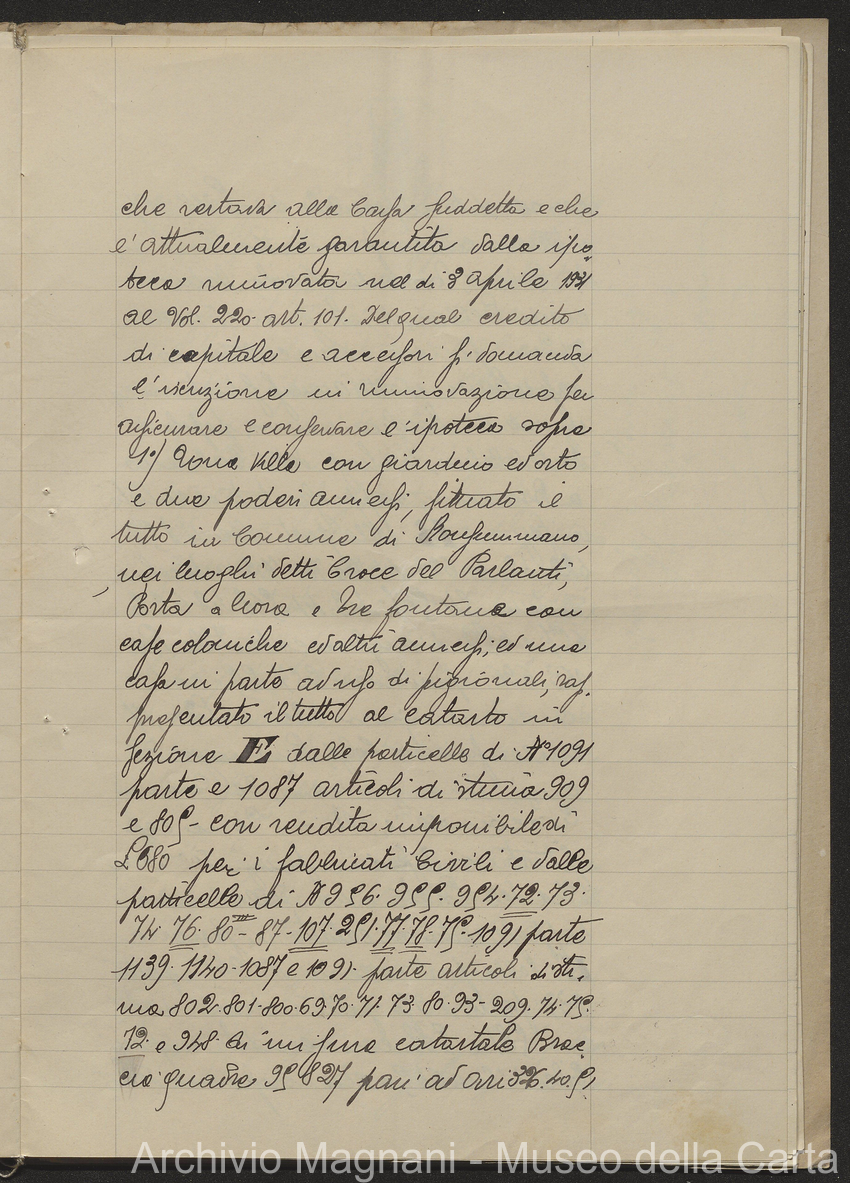 che restava alla Cassa suddetta e che
è attualmente garantita dalla ipo
teca rinnovata nel di 3 aprile 1931
al Vol. 220 art. 101. Del qual credito
di capitale e accessori si domanda
l'iscrizione in rinnovazione per
assicurare e conservare l'ipoteca sopra
1°) Una Villa con giardino ed orto
e due poderi annessi, situato il
tutto in Comune di Monsummano,
nei luoghi detti Croce del Parlanti,
Porta a Nora e Tre fontane con
case coloniche ed altri annessi, ed una
casa in parte ad uso di pigionali, rap
presentato il tutto al catasto in
sezione E dalle particelle di N 1091
parte e 1087 articoli di stima 909
e 805 - con rendita imponibile di
£ 680 per i fabbricati Civili e dalle
particelle di N 956. 955. 954. 72. 73.
74. 76. 80 III - 87 - 107. 251. 77. 78. 75. 1091 parte
1139. 1140 - 1087 e 1091. parte articoli di sti.
ma 802. 801. 800. 69. 70. 71. 73. 80. 93 - 209. 74. 75.
72. e 948. di misura catastale Brac
cia quadre 95827 pari ad ari 326. 40. 51
Archivio Magnani - Museo della Carta